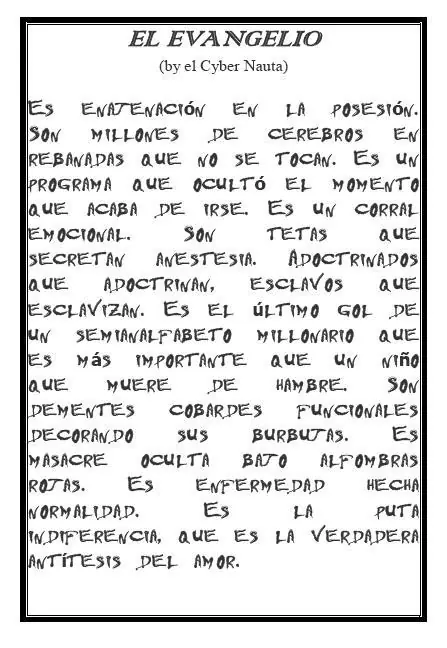 EL EVANGELIO
(by el Cyber Nauta)
Es enajenación en la posesión.
Son millones de cerebros en
rebanadas que no se tocan. Es un
programa que ocultó el momento
que acaba de irse. Es un corral
emocional. Son tetas que
secretan anestesia. Adoctrinados
que adoctrinan, esclavos que
esclavizan. Es el último gol de
un semianalfabeto millonario que
es más importante que un niño
que muere de hambre. Son
dementes cobardes funcionales
decorando sus burbujas. Es
masacre oculta bajo alfombras
rojas. Es enfermedad hecha
normalidad. Es la puta
indiferencia, que es la verdadera
antítesis del amor.